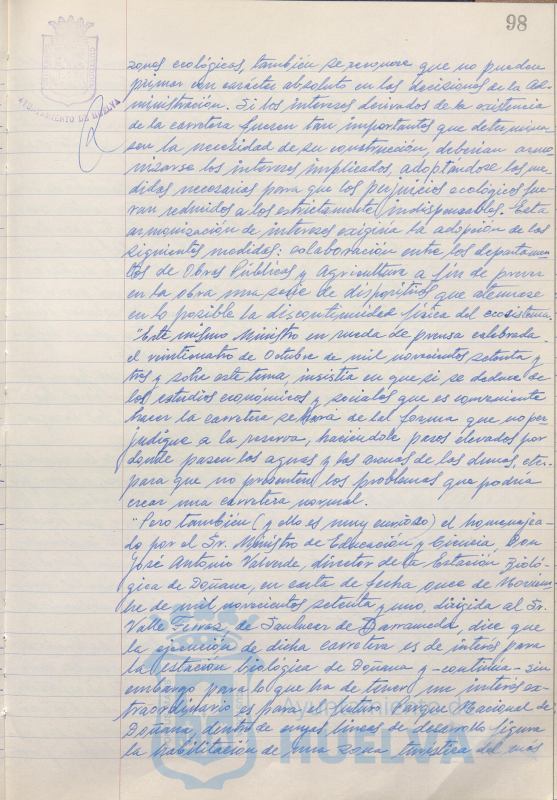 98
AYUNTAMIENTO DE HUELVA
zonas ecológicas, también se reconoce que no pueden
primar con carácter absoluto en las decisiones de la Ad-
ministración. Si los intereses derivados de la existencia
de la carretera fuesen tan importantes que determina-
sen la necesidad de su construcción, deberían armo-
nizarse los intereses implicados, adoptándose las me-
didas necesarias para que los perjuicios ecológicos fue-
ran reducidos a los estrictamente indispensables. Esta
armonización de intereses exigiría la adopción de las
siguientes medidas: colaboración entre los departamen-
tos de Obras Públicas y Agricultura a fin de prever
en la obra una serie de dispositivos que atenuase
en lo posible la discontinuidad física del ecosistema.
"Este mismo Ministro en rueda de prensa celebrada
el veinticuatro de Octubre de mil novecientos setenta y
tres y sobre este tema, insistía en que si se deduce de
los estudios económicos y sociales que es conveniente
hacer la carretera se hará de tal forma que no per-
judique a la reserva, haciéndole pasos elevados por
donde pasen las aguas y las arenas de las dunas, etc.
para que no presenten los problemas que podría
crear una carretera normal.
"Pero también (y ello es muy curioso) el homenajea-
do por el Sr. Ministro de Educación y Ciencia, Don
José Antonio Valverde, director de la Estación Bioló-
gica de Doñana, en carta de fecha once de Noviem-
bre de mil novecientos setenta y uno, dirigida al Sr.
Valle de Sanlúcar de Barrameda, dice que
la ejecución de dicha carretera es de interés para
la estación biológica de Doñana y -continúa- sin
embargo para lo que ha de tener un interés ex-
traordinario es para el futuro Parque Nacional de
Doñana, dentro de cuyas líneas de desarrollo figura
la habilitación de una zona turística del más
Ayuntamiento de
HUELVA